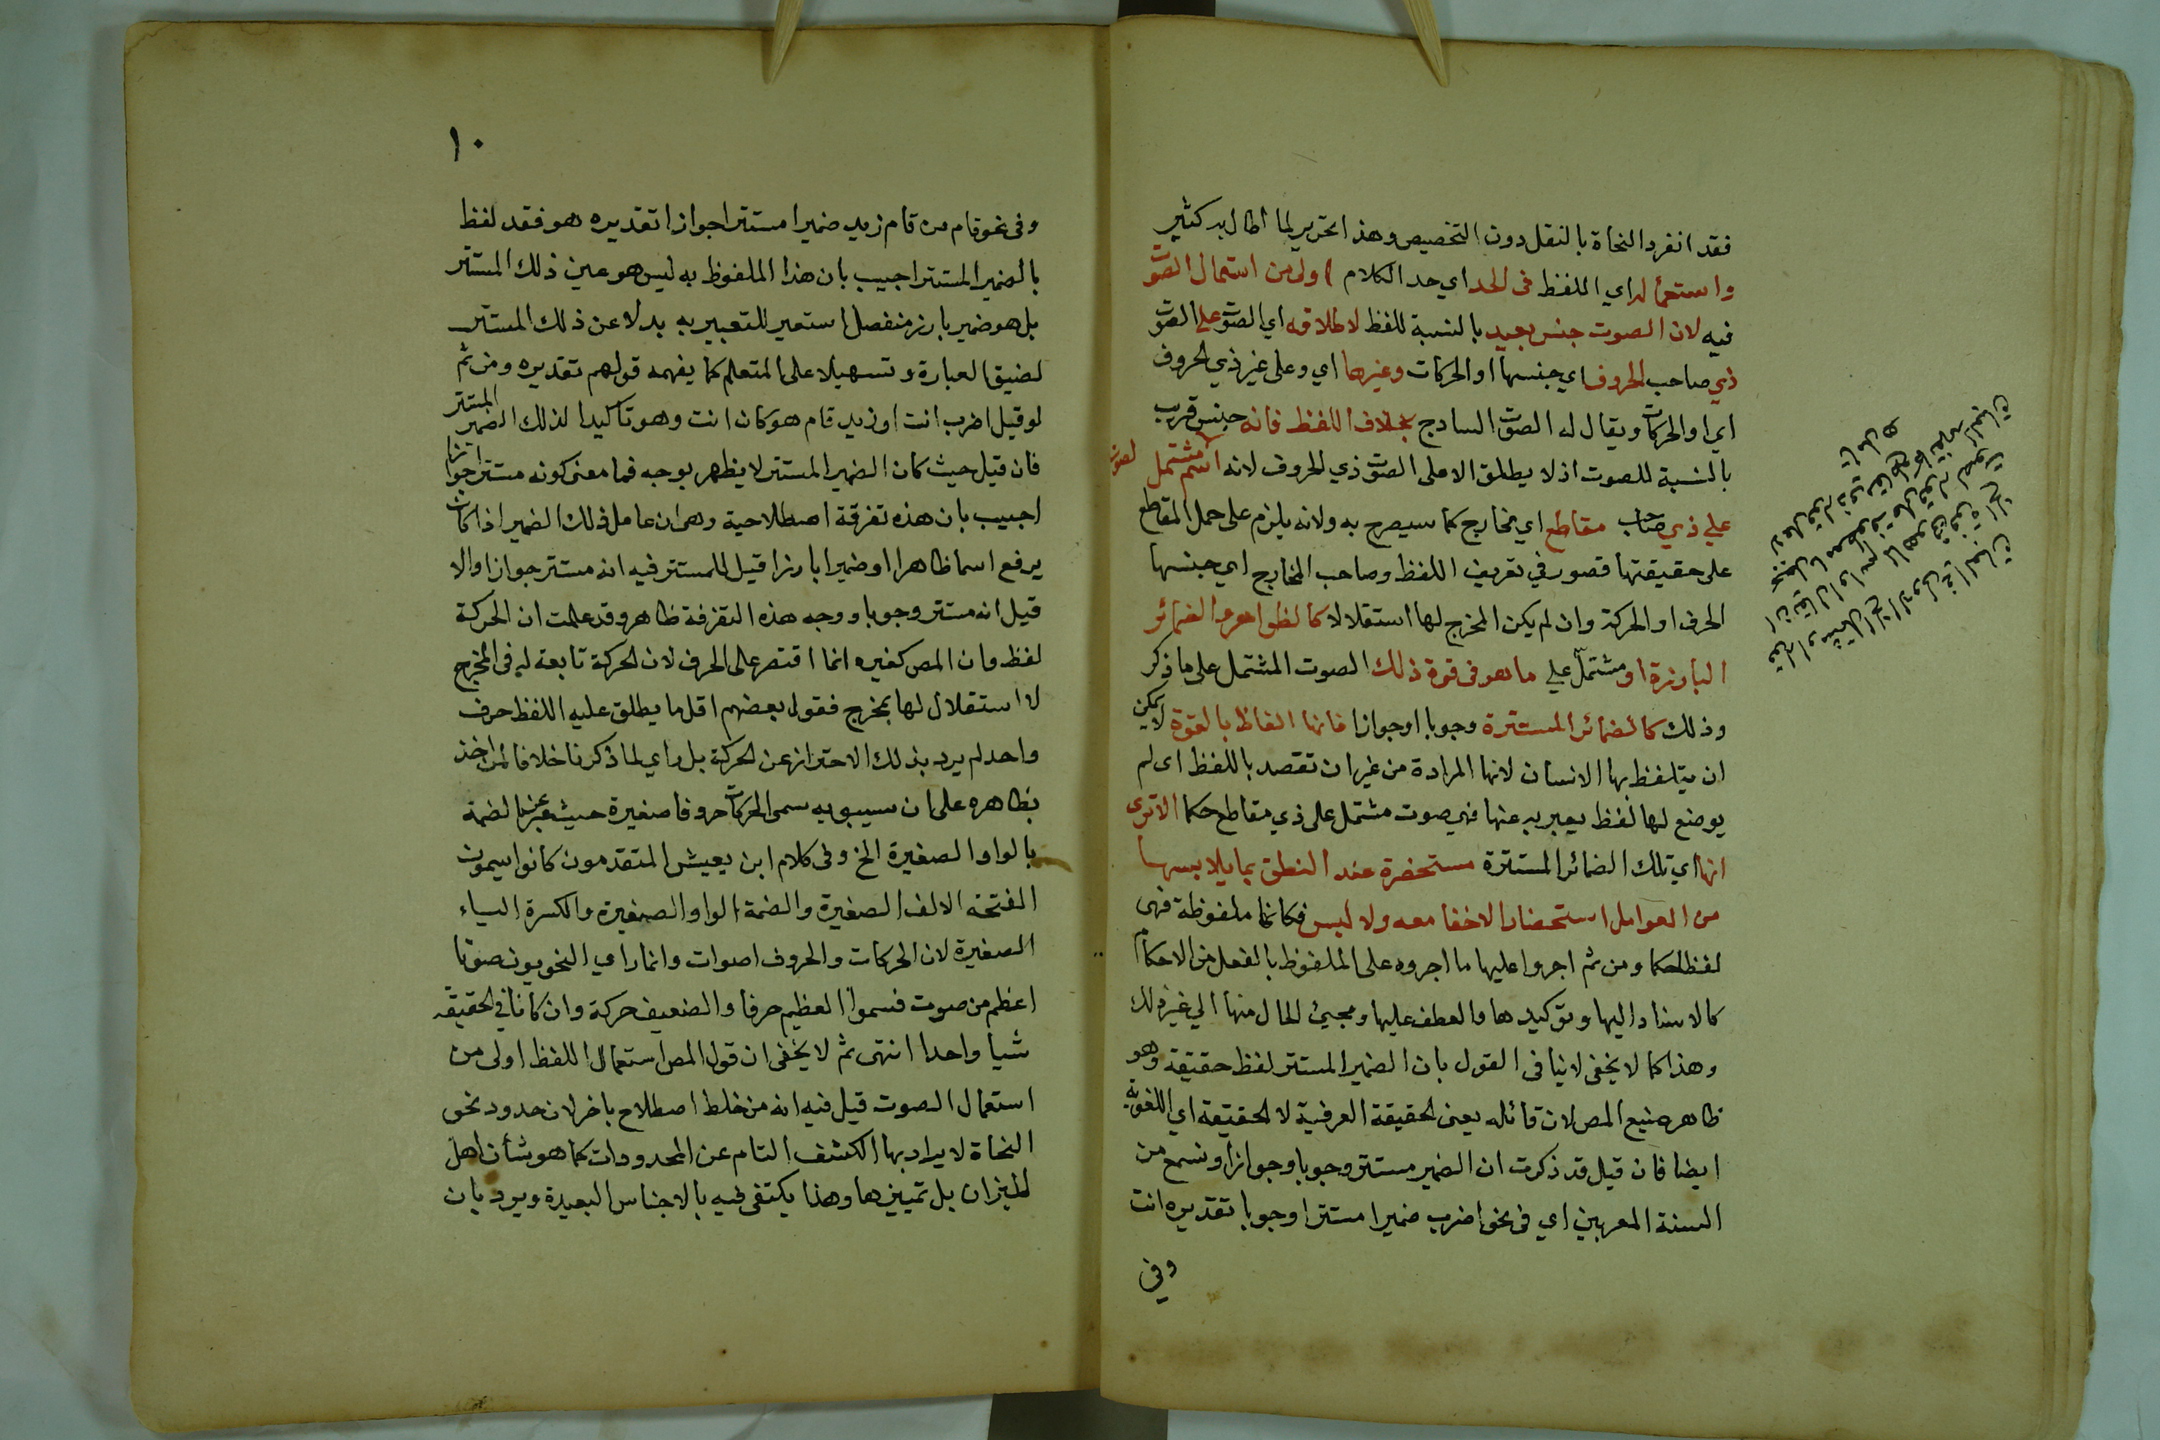 فقد انفرد النحاة بالنقل دون التخصيص وهذا تحرير لما اطال به كثير
واستعماله اي اللفظ في الحد اي حد الكلام اولى من استعمال الصوت
فيه لان الصوت جنس بعيد بالنسبة للفظ لاطلاقه اي الصوت على الصوت
ذي صاحب الحروف اي جنسها او الحركات وغيرها اي وعلى غير ذي الحروف
اي او الحركات ويقال له الصوت الساذج بخلاف اللفظ فانه جنس قريب
بالنسبة للصوت اذ لا يطلق الا على الصوت ذي الحروف لانه اسم لصوت مشتمل
على ذي صاحب مقاطع اي مخارج كما سيصرح به ولانه يلزم على حمل المقاطع
على حقيقتها قصور في تعريف اللفظ وصاحب المخارج اي جنسها
الحرف او الحركة وان لم يكن المخرج لها استقلالا كالظواهر والضمائر
البارزة او مشتمل على ما هو في قوة ذلك الصوت المشتمل على ما ذكر
وذلك كالضمائر المستترة وجوبا او جوازا فانها الفاظ بالقوة لا يمكن
ان يتلفظ بها الانسان لانها المرادة من غير ان تقصد باللفظ اي لم
يوضع لها لفظ يعبر به عنها فهي صوت مشتمل على ذي مقاطع حكما الا ترى
انها اي تلك الضمائر المستترة مستحضرة عند النطق بما يلابسها
من العوامل استحضارا لا خفا معه ولا لبس فكانها ملفوظة فهي
لفظ حكما ومن ثم اجروا عليها ما اجروه على الملفوظ بالفعل من الاحكام
كالاسناد اليها وتوكيدها والعطف عليها ومجيئ الحال منها الي غير ذلك
وهذا كما لا يخفى لا ينافي القول بان الضمير المستتر لفظ حقيقة وهو
ظاهر صنيع المص لان قائله يعني الحقيقة العرفية لا الحقيقة اي اللغوية
ايضا فان قيل قد ذكرت ان الضمير مستتر وجوبا وجوازا ونسمع من
السنة المعربين اي في نحو اضرب ضميرا مستترا وجوبا تقديره انت
وفي
١٠
وفي نحو قام من قام زيد ضميرا مستترا جوازا تقديره هو فقد لفظ
بالضمير المستتر اجيب بان هذا الملفوظ به ليس هو عين ذلك المستتر
بل هو ضمير بارز منفصل استعير للتعبير به بدلا عن ذلك المستتر
لضيق العبارة وتسهيلا على المتعلم كما يفهمه قولهم تقديره ومن ثم
لو قيل اضرب انت او زيد قام هو كان انت وهو تاكيدا لذلك الضمير المستتر
فان قيل حيث كان الضمير المستتر لا يظهر بوجه فما معنى كونه مستتر جوازا
اجيب بان هذه تفرقة اصطلاحية وهي ان عامل ذلك الضمير اذا كان
يرفع اسما ظاهرا او ضميرا بارزا قيل للمستتر فيه انه مستتر جوازا والا
قيل انه مستتر وجوبا ووجه هذه التفرقة ظاهر وقد علمت ان الحركة
لفظ وان المص كغيره انما اقتصر على الحرف لان الحركة تابعة له في المخرج
لا استقلال لها بمخرج فقول بعضهم اقل ما يطلق عليه اللفظ حرف
واحد لم يرد بذلك الاحتراز عن الحركة بل راي لما ذكرنا خلافا لمن اخذ
بظاهره على ان سيبويه سمى الحركات حروفا صغيرة حيث عبر عن الضمة
بالواو الصغيرة الخ وفي كلام ابن يعيش المتقدمون كانوا يسمون
الفتحة الالف الصغيرة والضمة الواو الصغيرة والكسرة الياء
الصغيرة لان الحركات والحروف اصوات وانما راي النحويون صوتا
اعظم من صوت فسموا العظيم حرفا والضعيف حركة وان كانا في الحقيقة
شيا واحدا انتهى ثم لا يخفى ان قول المص استعمال اللفظ اولى من
استعمال الصوت قيل فيه انه من خلط اصطلاح باخر لان حدود نحو
النحاة لا يراد بها الكشف التام عن المحدودات كما هو شأن اهل
الميزان بل تمييزها وهذا يكتفى فيه بالاجناس البعيدة ويرد بان